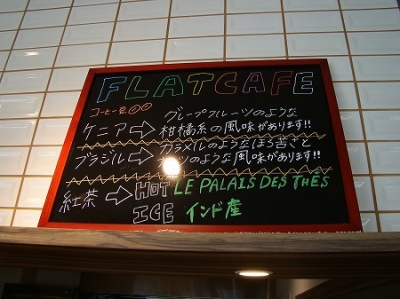 FLATCAFE
コーヒー豆
グレープフルーツのような
ケニア→柑橘系の風味があります!!
ブラジル→カラメルのようなほろ苦さと
ツのような風味があります!!
紅茶→HOT LE PALAIS DES THÉS
ICE インド産